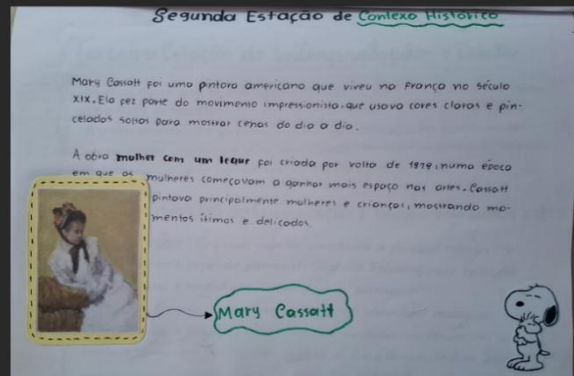 Segunda Estação de Contexo Histórico
Mary Cassatt foi uma pintora americana que viveu na França no século
XIX. Ela fez parte do movimento impressionista, que usava cores claras e pin-
celadas soltas para mostrar cenas do dia a dia.
A obra mulher com um leque foi criada por volta de 1879, numa época
em que as mulheres começavam a ganhar mais espaço nas artes. Cassatt
pintava principalmente mulheres e crianças, mostrando mo-
mentos ítimos e delicados
Mary Cassatt